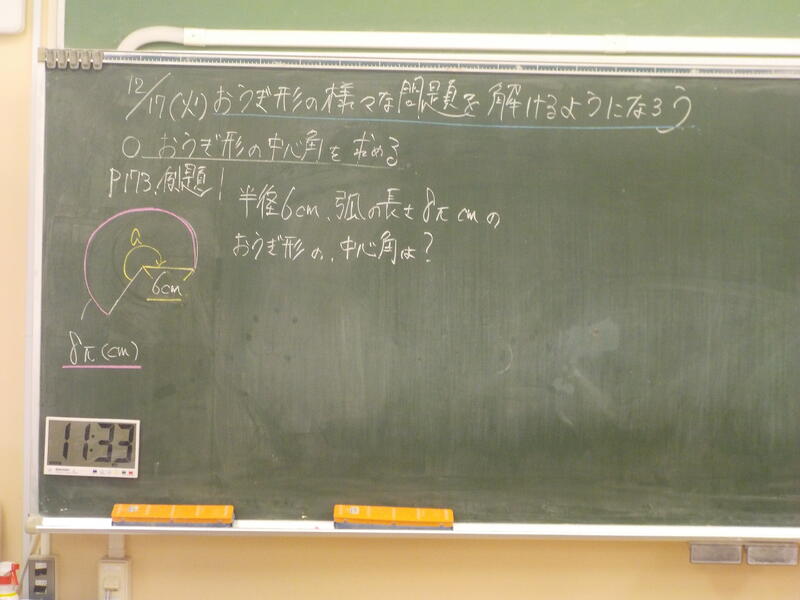 12/17(火) おうぎ形の様々な問題を解けるようになろう
○ おうぎ形の中心角を求める
P173,例題1
半径6cm、弧の長さ8π cmの
おうぎ形の、中心角は?
a
6cm
8π(cm)
11:33